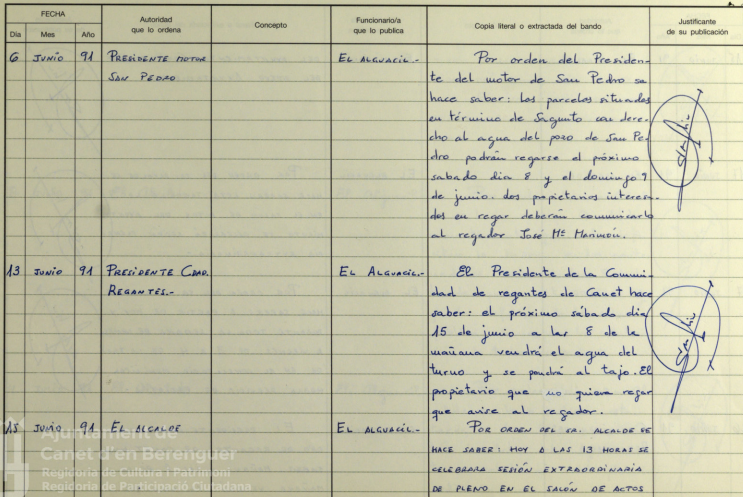 FECHA
Día Mes Año
Autoridad
que lo ordena
Concepto
Funcionario/a
que lo publica
Copia literal o extractada del bando
Justificante
de su publicación
6 JUNIO 91 PRESIDENTE MOTOR
SAN PEDRO
EL ALGUACIL.-
Por orden del Presiden-
te del motor de San Pedro se
hace saber: Las parcelas situadas
en término de Sagunto con dere-
cho al agua del pozo de San Pe-
dro podrán regarse el próximo
sabado dia 8 y el domingo 9
de junio. Los propietarios interesa-
dos en regar deberán communicarlo
al regador José Mª
13 JUNIO 91 PRESIDENTE CDAD.
REGANTES.-
EL ALGUACIL.-
El Presidente de la Communi-
dad de regantes de Canet hace
saber: el próximo sábado dia
15 de junio a las 8 de la
mañana vendrá el agua del
turno y se pondrá al tajo. El
propietario que no quiera regar
que avise al regador.
15 JUNIO 91 EL ALCALDE
EL ALGUACIL.-
POR ORDEN DEL SR. ALCALDE SE
HACE SABER: HOY A LAS 13 HORAS SE
CELEBRARA SESIÓN EXTRAORDINARIA
DE PLENO EN EL SALÓN DE ACTOS
Ajuntament de
Canet d'en Berenguer
Regidoria de Cultura i Patrimoni
Regidoria de Participació Ciutadana